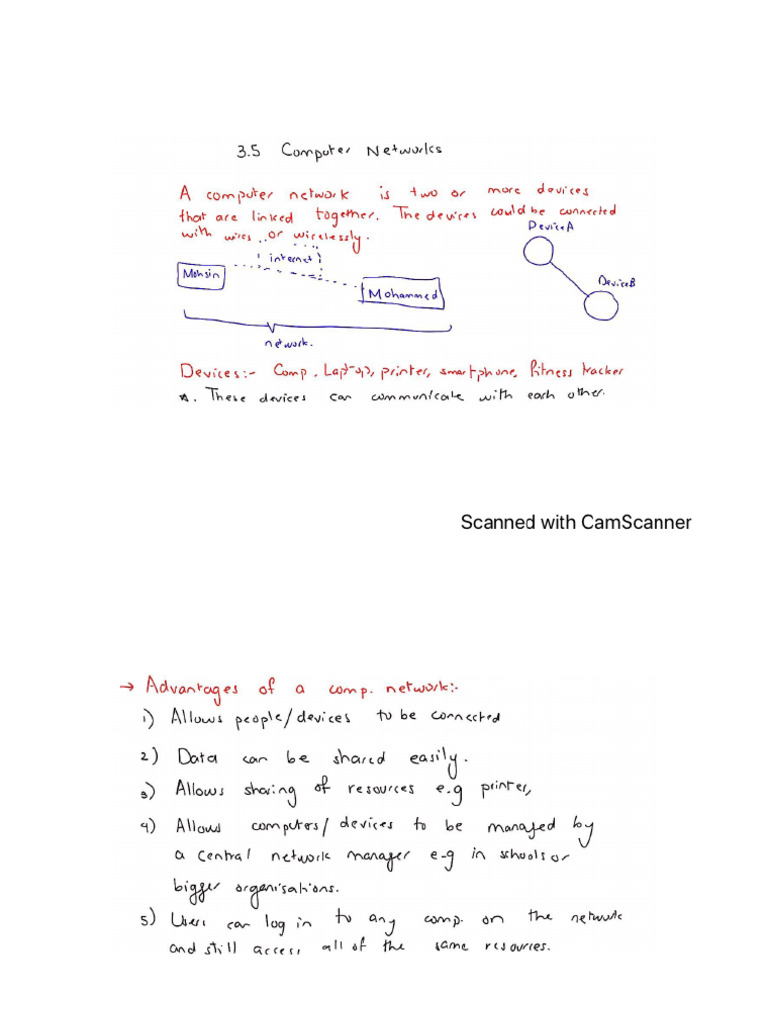 3.5 Computer Networks
A computer network is two or more devices
that are linked together. The devices could be connected
with wires or wirelessly.
Device A
internet
Mohsin
Device B
Mohammed
network.
Devices:- Comp, Laptop, printer, smartphone, Fitness tracker
*. These devices can communicate with each other.
Scanned with CamScanner
→ Advantages of a comp. network:-
1) Allows people/devices to be connected
2) Data can be shared easily.
3) Allows sharing of resources e.g printer,
4) Allows computers/devices to be managed by
a central network manager e-g in schools or
bigger organisations.
5) Users can log in to any comp. on the network
and still access all of the same resources.